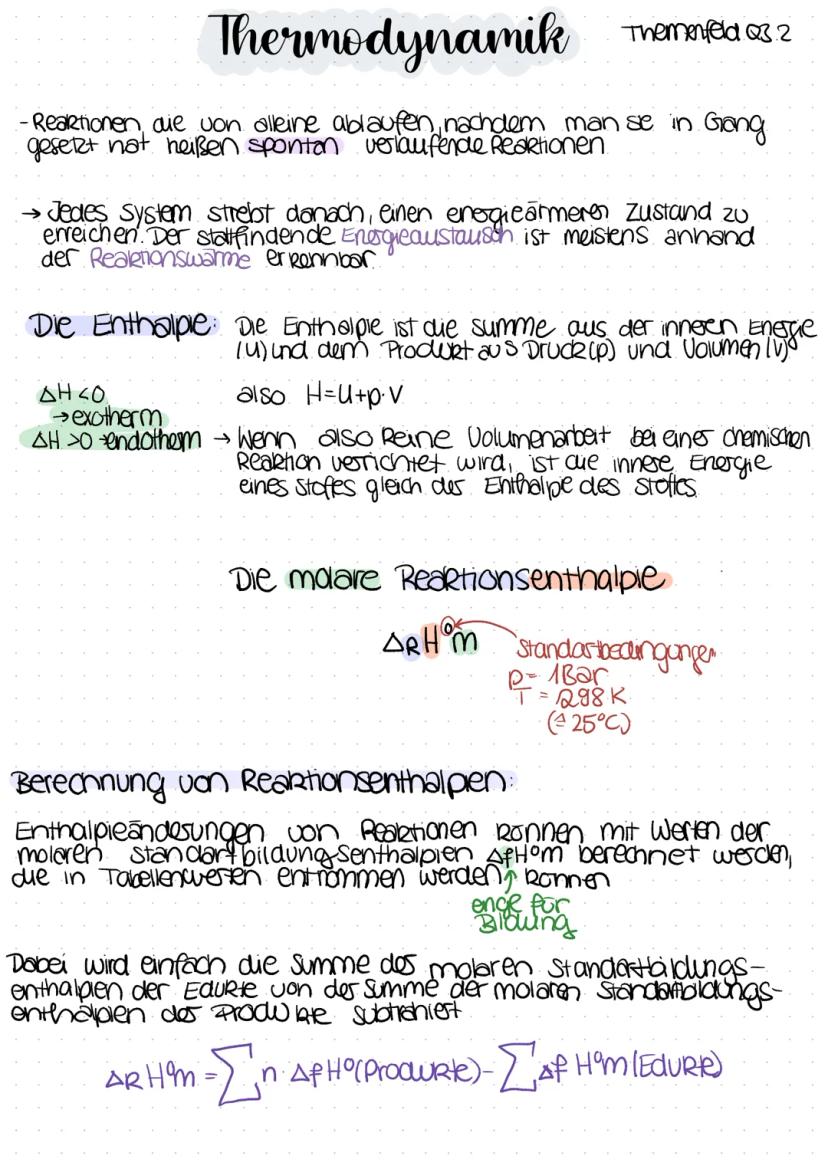 Thermodynamik
Themenfeld Q3.2
- Reaktionen, die von alleine ablaufen, nachdem man se in Gang
gesetzt hat heißen spontan verlaufende Reaktionen
→ Jedes System strebt danach, einen energieärmeren Zustand zu
erreichen. Der stattfindende Energieaustausch ist meistens anhand
der Reaktionswärme erkennbar
Die Enthalpie: Die Enthalpie ist die Summe aus der inneren Energie
(U) und dem Produkt aus Druck (p) und Volumen (V)
ΔH <0
→ exotherm
ΔH >0 → endotherm
also H=U+p·V
→ Wenn also keine Volumenarbeit bei einer chemischen
Reaktion verrichtet wird, ist die innere Energie
eines Stoffes gleich der Enthalpie des Stoffes
Die molare Reaktionsenthalpie
ΔRH⁰m
Standartbedingungen
p = 1Bar
T = 298 K
(≙ 25°C)
Berechnung von Reaktionsenthalpien:
Enthalpieänderungen von Reaktionen können mit Werten der
molaren Standartbildungsenthalpien ΔfH⁰m berechnet werden,
die in Tabellenwerken entnommen werden können
↑
engl für
Bildung
Dabei wird einfach die Summe der molaren Standartbildungs-
enthalpien der Edukte von der Summe der molaren Standartbildungs-
enthalpien der Produkte subtrahiert
ΔRH⁰m = ∑n·ΔfH⁰(Produkte) - ∑ΔfH⁰m(Edukte)